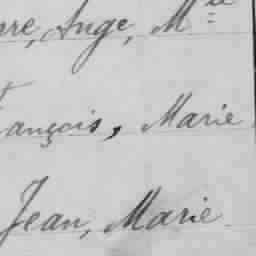 rre, Ange, M.ie
ançois, Marie
Jean, Marie